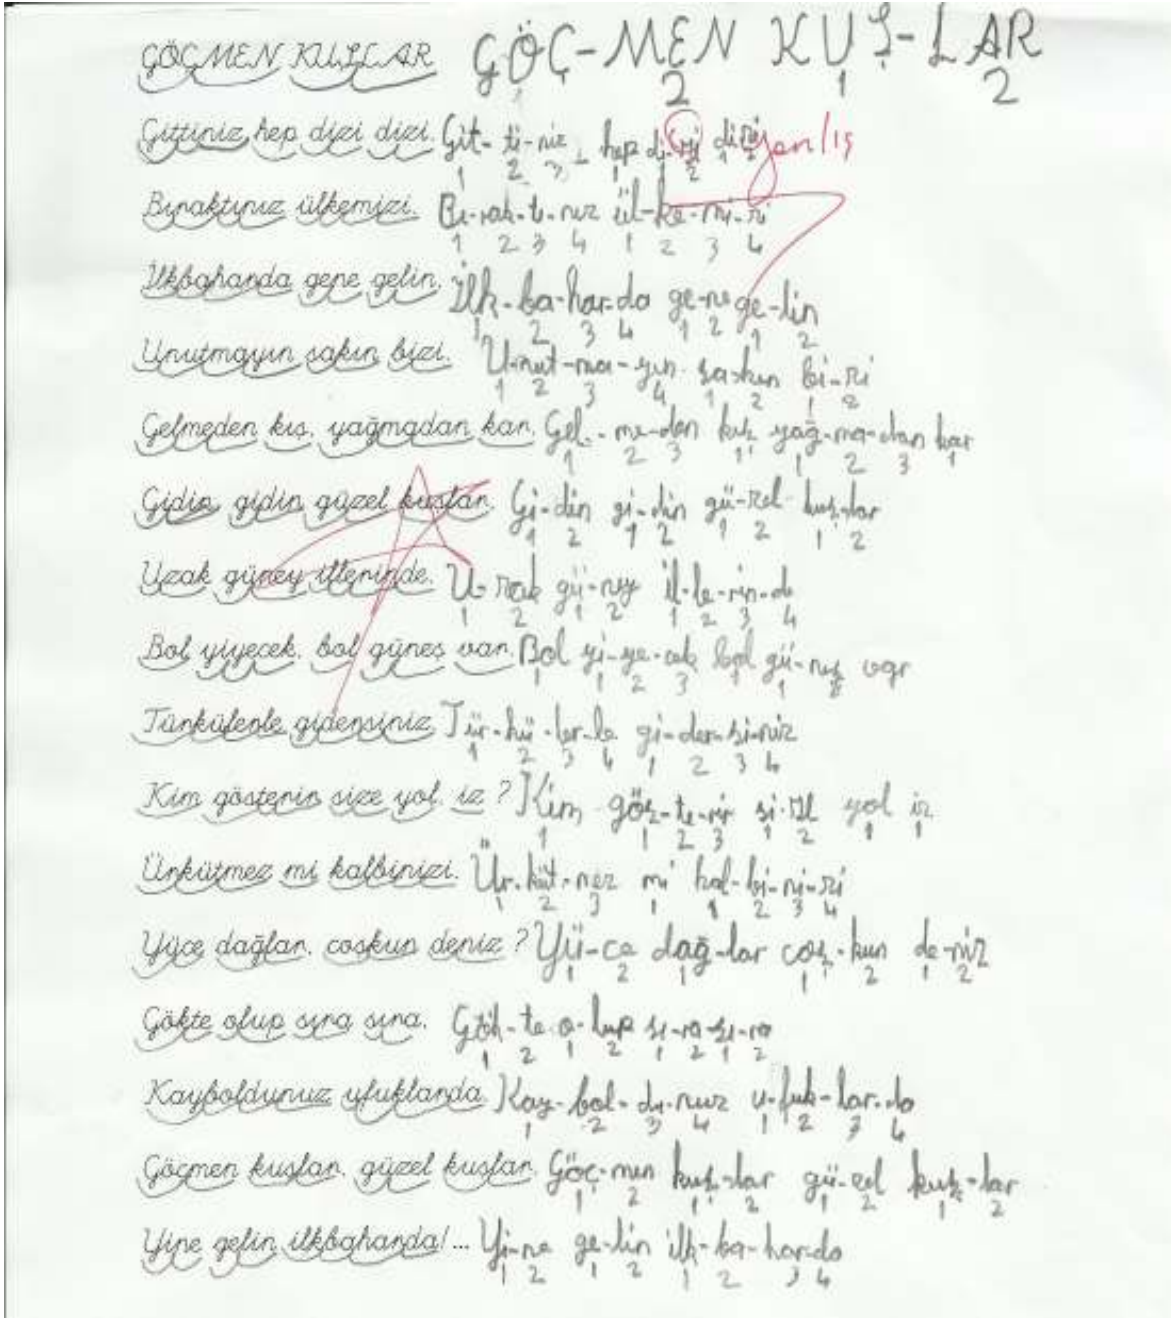 GÖÇMEN KUŞLAR GÖÇ-MEN KUŞ-LAR
1 2 1 2
Gittiniz hep dizi dizi. Git-ti-niz hep di-zi di-zi yanlış
1 2 3 1 1 2 1 2
Bıraktınız ülkemizi. Bı-rak-tı-nız ül-ke-mi-zi
1 2 3 4 1 2 3 4
İlkbaharda gene gelin. İlk-ba-har-da ge-ne ge-lin
1 2 3 4 1 2 1 2
Unutmayın sakın bizi. U-nut-ma-yın sa-kın bi-zi
1 2 3 4 1 2 1 2
Gelmeden kış, yağmadan kar. Gel-me-den kış yağ-ma-dan kar
1 2 3 1 1 2 3 1
Gidin gidin güzel kuşlar. Gi-din gi-din gü-zel kuş-lar
1 2 1 2 1 2 1 2
Uzak güney illerinde. U-zak gü-ney il-le-rin-de
1 2 1 2 1 2 3 4
Bol yiyecek, bol güneş var. Bol yi-ye-cek bol gü-neş var
1 1 2 3 1 1 2
Türkülerle gidersiniz Tür-kü-ler-le gi-der-si-niz
1 2 3 4 1 2 3 4
Kim gösterir size yol, iz ? Kim gös-te-rir si-ze yol iz
1 1 2 3 1 2 1 1
Ürkütmez mi kalbinizi. Ür-küt-mez mi kal-bi-ni-zi
1 2 3 1 1 2 3 4
Yüce dağlar, coşkun deniz ? Yü-ce dağ-lar coş-kun de-niz
1 2 1 1 2 1 2
Gökte olup sıra sıra. Gök-te o-lup sı-ra-sı-ra
1 2 1 2 1 2 1 2
Kayboldunuz ufuklarda Kay-bol-du-nuz u-fuk-lar-da
1 2 3 4 1 2 3 4
Göçmen kuşlar, güzel kuşlar. Göç-men kuş-lar gü-zel kuş-lar
1 2 1 2 1 2 1 2
Yine gelin ilkbaharda!... Yi-ne ge-lin ilk-ba-har-da
1 2 1 2 1 2 3 4